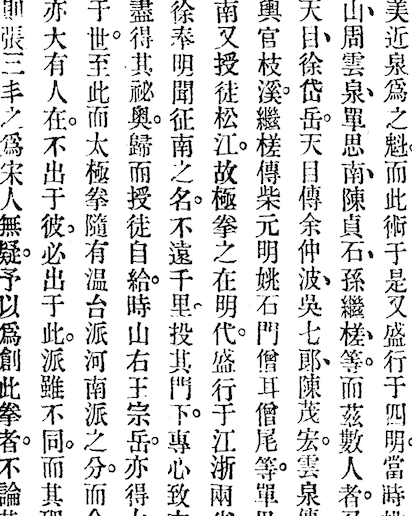 美近泉爲之魁。而此術于是又盛行于四明。當時
山、周雲泉、單思南、陳貞石、孫繼槎等。而茲數人者。
天目、徐岱岳。天目傳余仲波、吳七郎、陳茂宏。雲泉
輿官枝溪。繼槎傳柴元明姚石門僧耳僧尾等。單
南又授徒松江。故極拳之在明代。盛行于江浙兩
徐奉明聞征南之名。不遠千里。投其門下。專心致
盡得其祕奧。歸而授徒自給。時山右王宗岳。亦得
于世。至此而太極拳隨有温台派河南派之分。而
亦大有人在。不出于彼。必出于此。派雖不同。而其
則張三丰之爲宋人無疑。予以爲創此拳者。不論